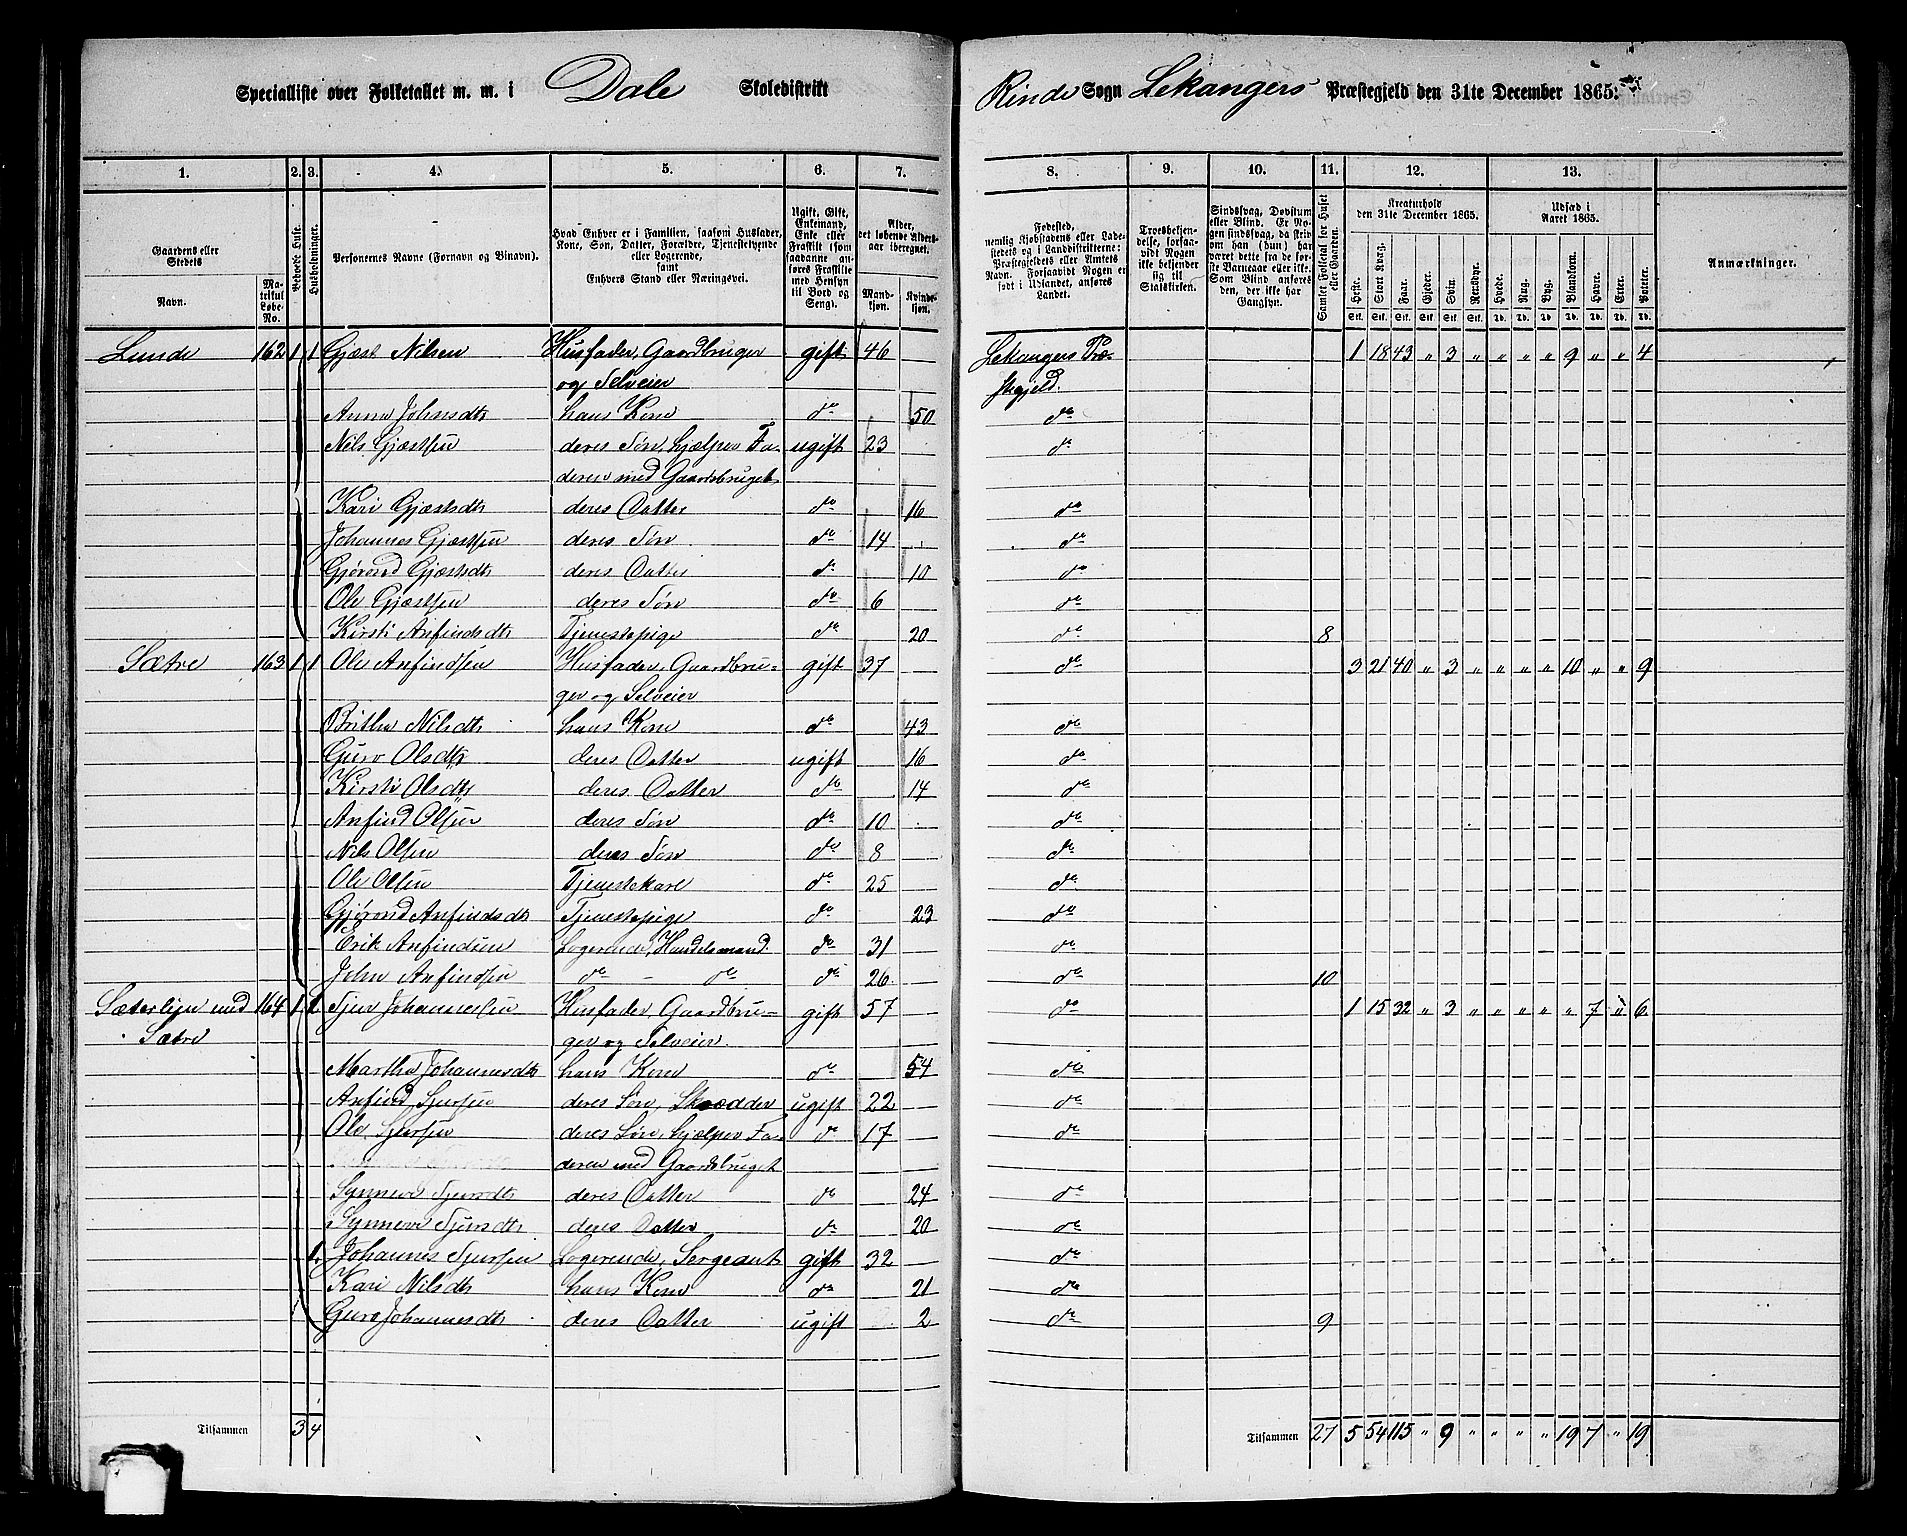 Specialliste over Folketallet m. m. i Dale Skoledistrikt
Rinde Sogn Lekangers Præstegjeld den 31te December 1865.
1. 2. 3. 4. 5. 6. 7. 8. 9. 10. 11. 12. 13.
Gaardens eller Stedets Navn. Matrikul Løbe-No. Beboede Huse. Husholdninger. Personernes Navne (Fornavn og Binavn).
Hvad Enhver er i Familien, saasom Husfader, Kone, Søn, Datter, Forældre, Tjenestetyende eller Logerende, samt Enhvers Stand eller Næringsvei.
Ugift, Gift, Enkemand, Enke eller Fraskilt (som saadanne anføres Fraskilte med Hensyn til Bord og Seng).
Alder, det løbende Aldersaar iberegnet. Mandkjøn. Kvindekjøn.
Fødested, nemlig Kjøbstadens eller Ladestedets og i Landdistrikterne: Præstegjeldets eller Amtets Navn. Forsaavidt Nogen er født i Udlandet, anføres Landet.
Troesbekjendelse, forsaavidt Nogen ikke bekjender sig til Statskirken.
Sindssvag, Døvstum eller Blind. Er Nogen sindssvag, da skriv om han (hun) har været dette fra de første Barneaar eller ikke. Som Blind anføres den, der ikke har Gangsyn.
Samlet Folketal for Huset eller Gaarden.
Kreaturhold den 31te December 1865. Heste. Stort Kvæg. Faar. Gjeder. Svin. Rensdyr.
Udsæd i Aaret 1865. Hvede. Rug. Byg. Blandkorn. Havre. Erter. Poteter.
Anmærkninger.
Stk. Stk. Stk. Stk. Stk. Stk. Td. Td. Td. Td. Td. Td. Td.
Lunde 162 1 1 Gjest Nilsen Husfader, Gaardbruger gift 46 Lekangers Præ- 1 18 43 " 3 " " " " 9 " " 4
og Selveier stegjeld.
Anna Johnsdtr hans Kone do 50 do
Nils Gjestsen deres Søn, hjælper Fa- ugift 23 do
deren med Gaardsbruget
Kari Gjestsdtr deres Datter do 16 do
Johannes Gjestsen deres Søn do 14 do
Gjørond Gjestsdtr deres Datter do 10 do
Ole Gjestsen deres Søn do 6 do
Kirsti Anfindsdtr Tjenestepige do 20 do 8
Sætre 163 1 1 Ole Anfindsen Husfader, Gaardbru- gift 37 do 3 21 40 " 3 " " " " 10 " " 9
ger og Selveier
Britha Nilsdtr hans Kone do 43 do
Guro Olsdtr deres Datter ugift 16 do
Kirsti Olsdtr deres Datter do 14 do
Anfind Olsen deres Søn do 10 do
Nils Olsen deres Søn do 8 do
Ole Olsen Tjenestekarl do 25 do
Gjørond Anfindsdtr Tjenestepige do 23 do
Erik Anfindsen Logerende, Handelsmand do 31 do
John Anfindsen do - do do 26 do 10
Sæterlien med 164 1 1 Sjur Johannessen Husfader, Gaardbru- gift 57 do 1 15 32 " 3 " " " " " 7 " 6
Sætre ger og Selveier
Martha Johannesdtr hans Kone do 54 do
Anfind Sjursen deres Søn, Skrædder ugift 22 do
Ole Sjursen deres Søn, hjælper Fa- do 17 do
deren med Gaardsbruget
Synneve Sjursdtr deres Datter do 24 do
Synneve Sjursdtr deres Datter do 20 do
1 Johannes Sjursen Logerende, Sergeant gift 32 do
Kari Nilsdtr hans Kone do 21 do
Guro Johannesdtr deres Datter ugift 2 do 9
Tilsammen 3 4 Tilsammen 27 5 54 115 " 9 " " " " 19 7 " 19